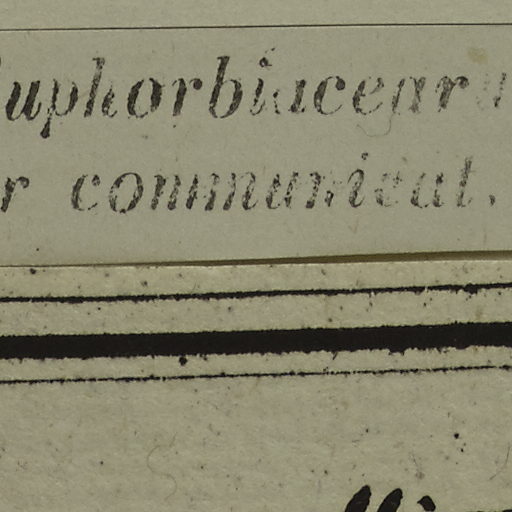 Euphorbiacearu
r communicat.